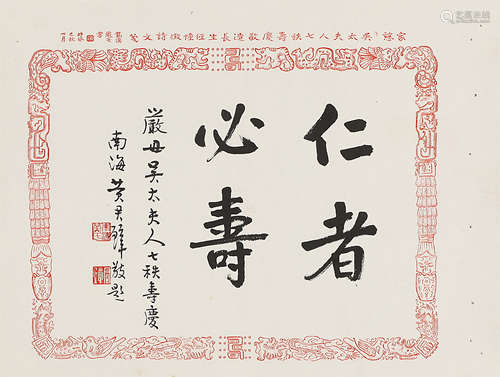 家慈吳太夫人七秩壽慶敬長生徵詩文箋
仁者
必壽
嚴母吳太夫人七秩壽慶
南海黃君璧敬題